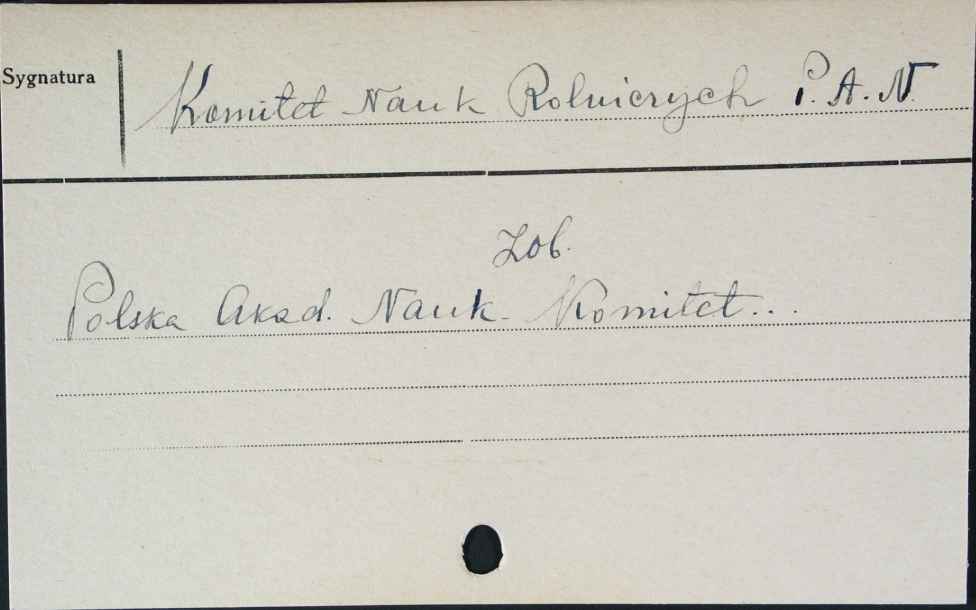 Sygnatura
Komitet Nauk Rolniczych P. A. N.
Zob.
Polska Akad. Nauk. Komitet...